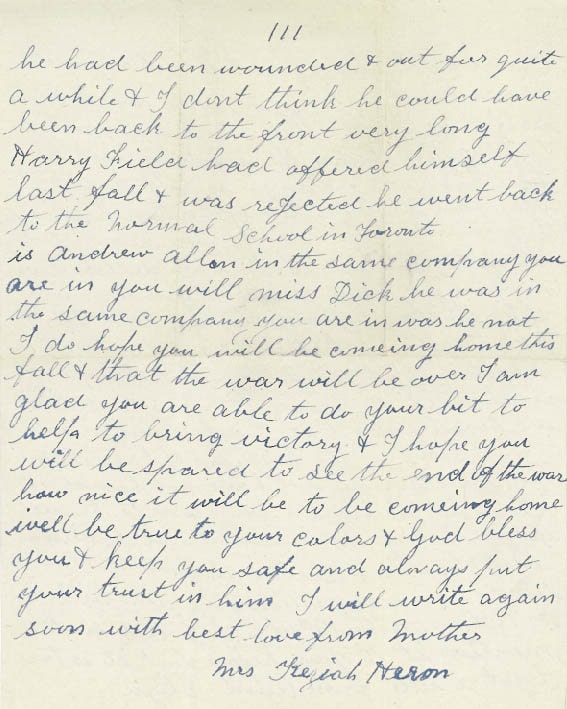 111
he had been wounded & out for quite
a while & I dont think he could have
been back to the front very long
Harry Field had offered himself
last fall & was rejected he went back
to the Normal School in Toronto
is andrew allen in the same company you
are in you will miss Dick he was in
the same company you are in was he not
I do hope you will be comeing home this
fall & that the war will be over I am
glad you are able to do your bit to
help to bring victory & I hope you
will be spared to see the end of the war
how nice it will be to be comeing home
well be true to your colors & God bless
you & keep you safe and always put
your trust in him I will write again
soon with best love from Mother
Mrs Keziah Heron